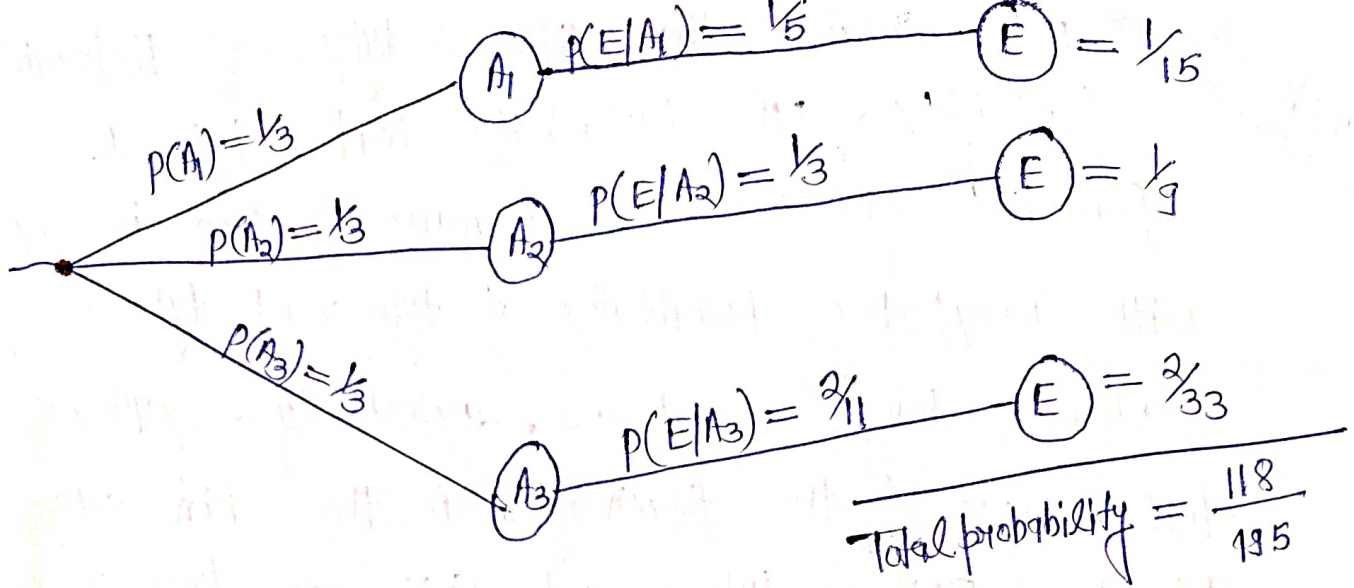 P(A₁) = 1/3
A₁
P(E|A₁) = 1/5
E = 1/15
P(A₂) = 1/3
A₂
P(E|A₂) = 1/3
E = 1/9
P(A₃) = 1/3
A₃
P(E|A₃) = 2/11
E = 2/33
Total probability = 118/195